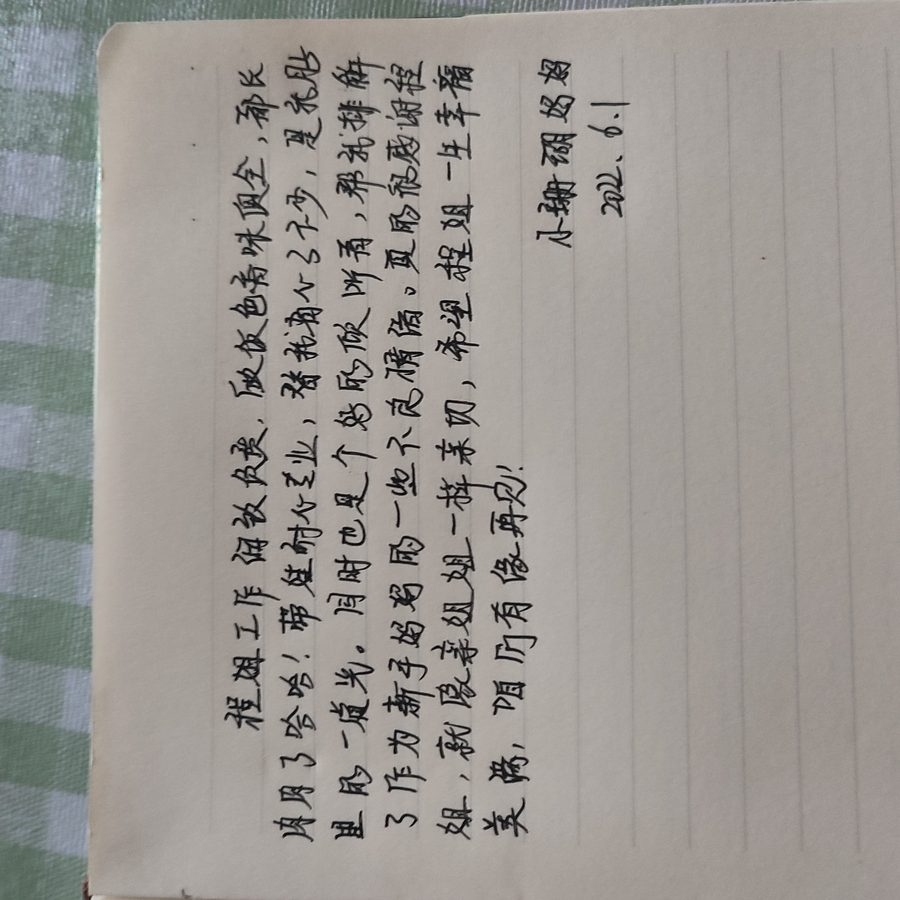 程姐工作细致负责，做饭色香味俱全，都长
肉肉了哈哈！带娃耐心专业，替我省心了不少，是我
里的一道光。同时也是个好的倾听者，帮我排解
了作为新手妈妈的一些不良情绪。真的很感谢程
姐，就像亲姐姐一样亲切，希望程姐一生幸福
美满，咱们有缘再见！
小珊瑚妈妈
2022.6.1